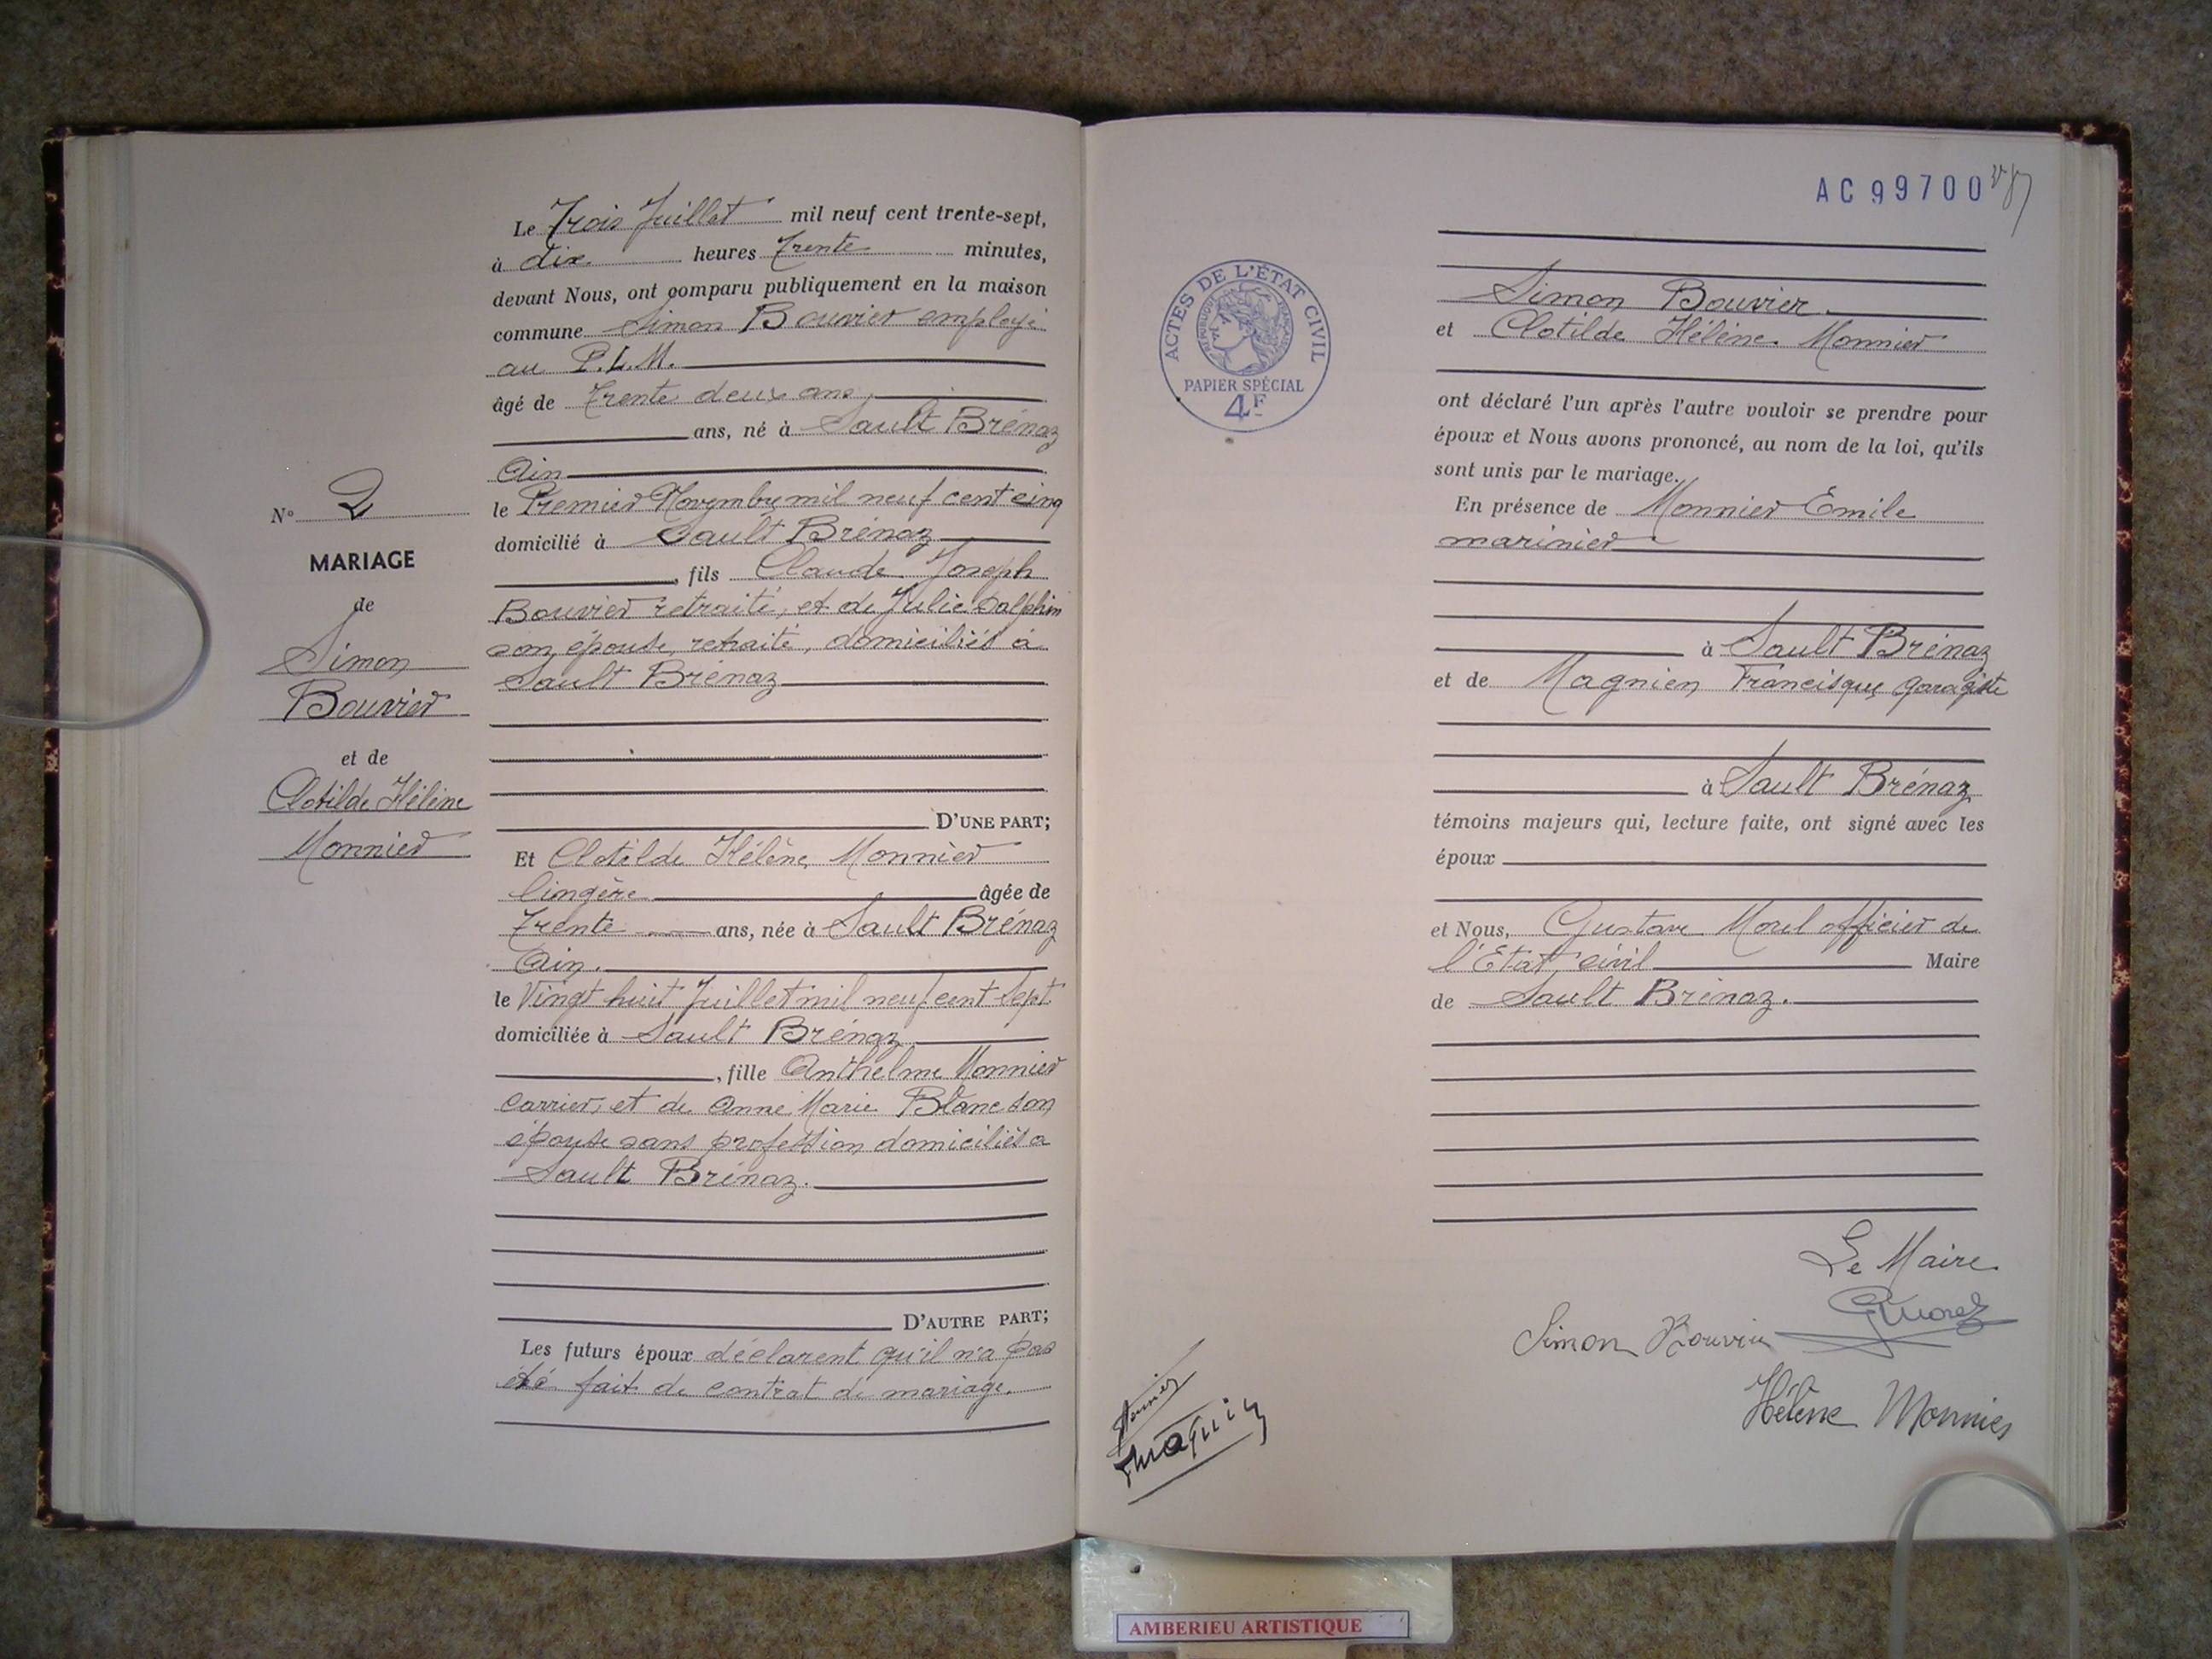 N° 2
MARIAGE
de
Simon
Bouvier
et de
Clotilde Hélène
Monnier
Le Trois Juillet mil neuf cent trente-sept,
à dix heures Trente minutes,
devant Nous, ont comparu publiquement en la maison
commune Simon Bouvier employé
au P.L.M.
âgé de Trente deux ans,
ans, né à Sault Brénaz
Ain
le Premier Novembre mil neuf cent cinq
domicilié à Sault Brénaz
, fils Claude Joseph
Bouvier retraité, et de Julie Dalphin
son épouse, retraité, domiciliés à
Sault Brénaz
D'UNE PART;
Et Clotilde Hélène Monnier
lingère âgée de
Trente ans, née à Sault Brénaz
Ain.
le Vingt huit Juillet mil neuf cent sept
domiciliée à Sault Brénaz
, fille Anthelme Monnier
carrier, et de Anne Marie Blanc son
épouse sans profession domiciliés a
Sault Brénaz.
D'AUTRE PART;
Les futurs époux déclarent qu'il n'a pas
été fait de contrat de mariage.
AC 99700
87
ACTES DE L'ÉTAT CIVIL
RÉPUBLIQUE FRANÇAISE
PAPIER SPÉCIAL
4F
Simon Bouvier
et Clotilde Hélène Monnier
ont déclaré l'un après l'autre vouloir se prendre pour
époux et Nous avons prononcé, au nom de la loi, qu'ils
sont unis par le mariage.
En présence de Monnier Emile
marinier
à Sault Brénaz
et de Magnien Francisque garagiste
à Sault Brénaz
témoins majeurs qui, lecture faite, ont signé avec les
époux
et Nous, Gustave Morel officier de
l'Etat civil Maire
de Sault Brénaz.
Le Maire
GMorel
Simon Bouvier
Hélène Monnier
Monnier
AMBERIEU ARTISTIQUE